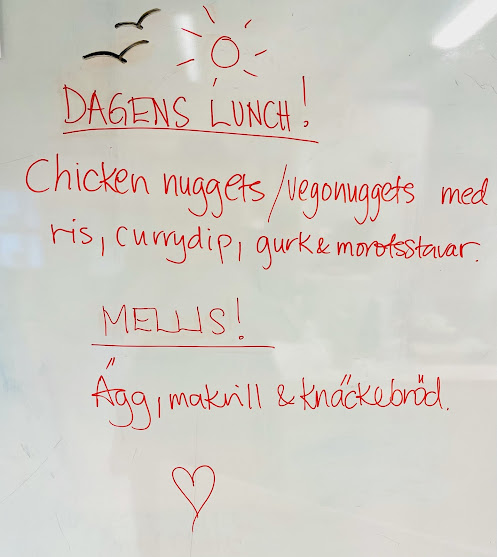 DAGENS LUNCH!
Chicken nuggets/vegonuggets med
ris, currydip, gurk & morotsstavar.
MELLIS!
Ägg, makrill & knäckebröd.